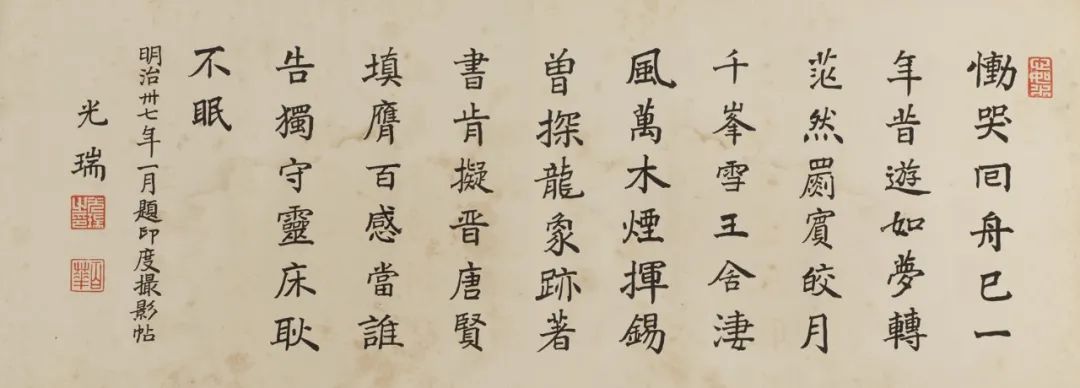 慟哭回舟已一
年昔遊如夢轉
茫然罽賓皎月
千峯雪王舍淒
風萬木煙揮錫
曽探龍象跡著
書肯擬晋唐賢
填膺百感當誰
告獨守靈床耿
不眠
明治卅七年一月題印度撮影帖
光瑞